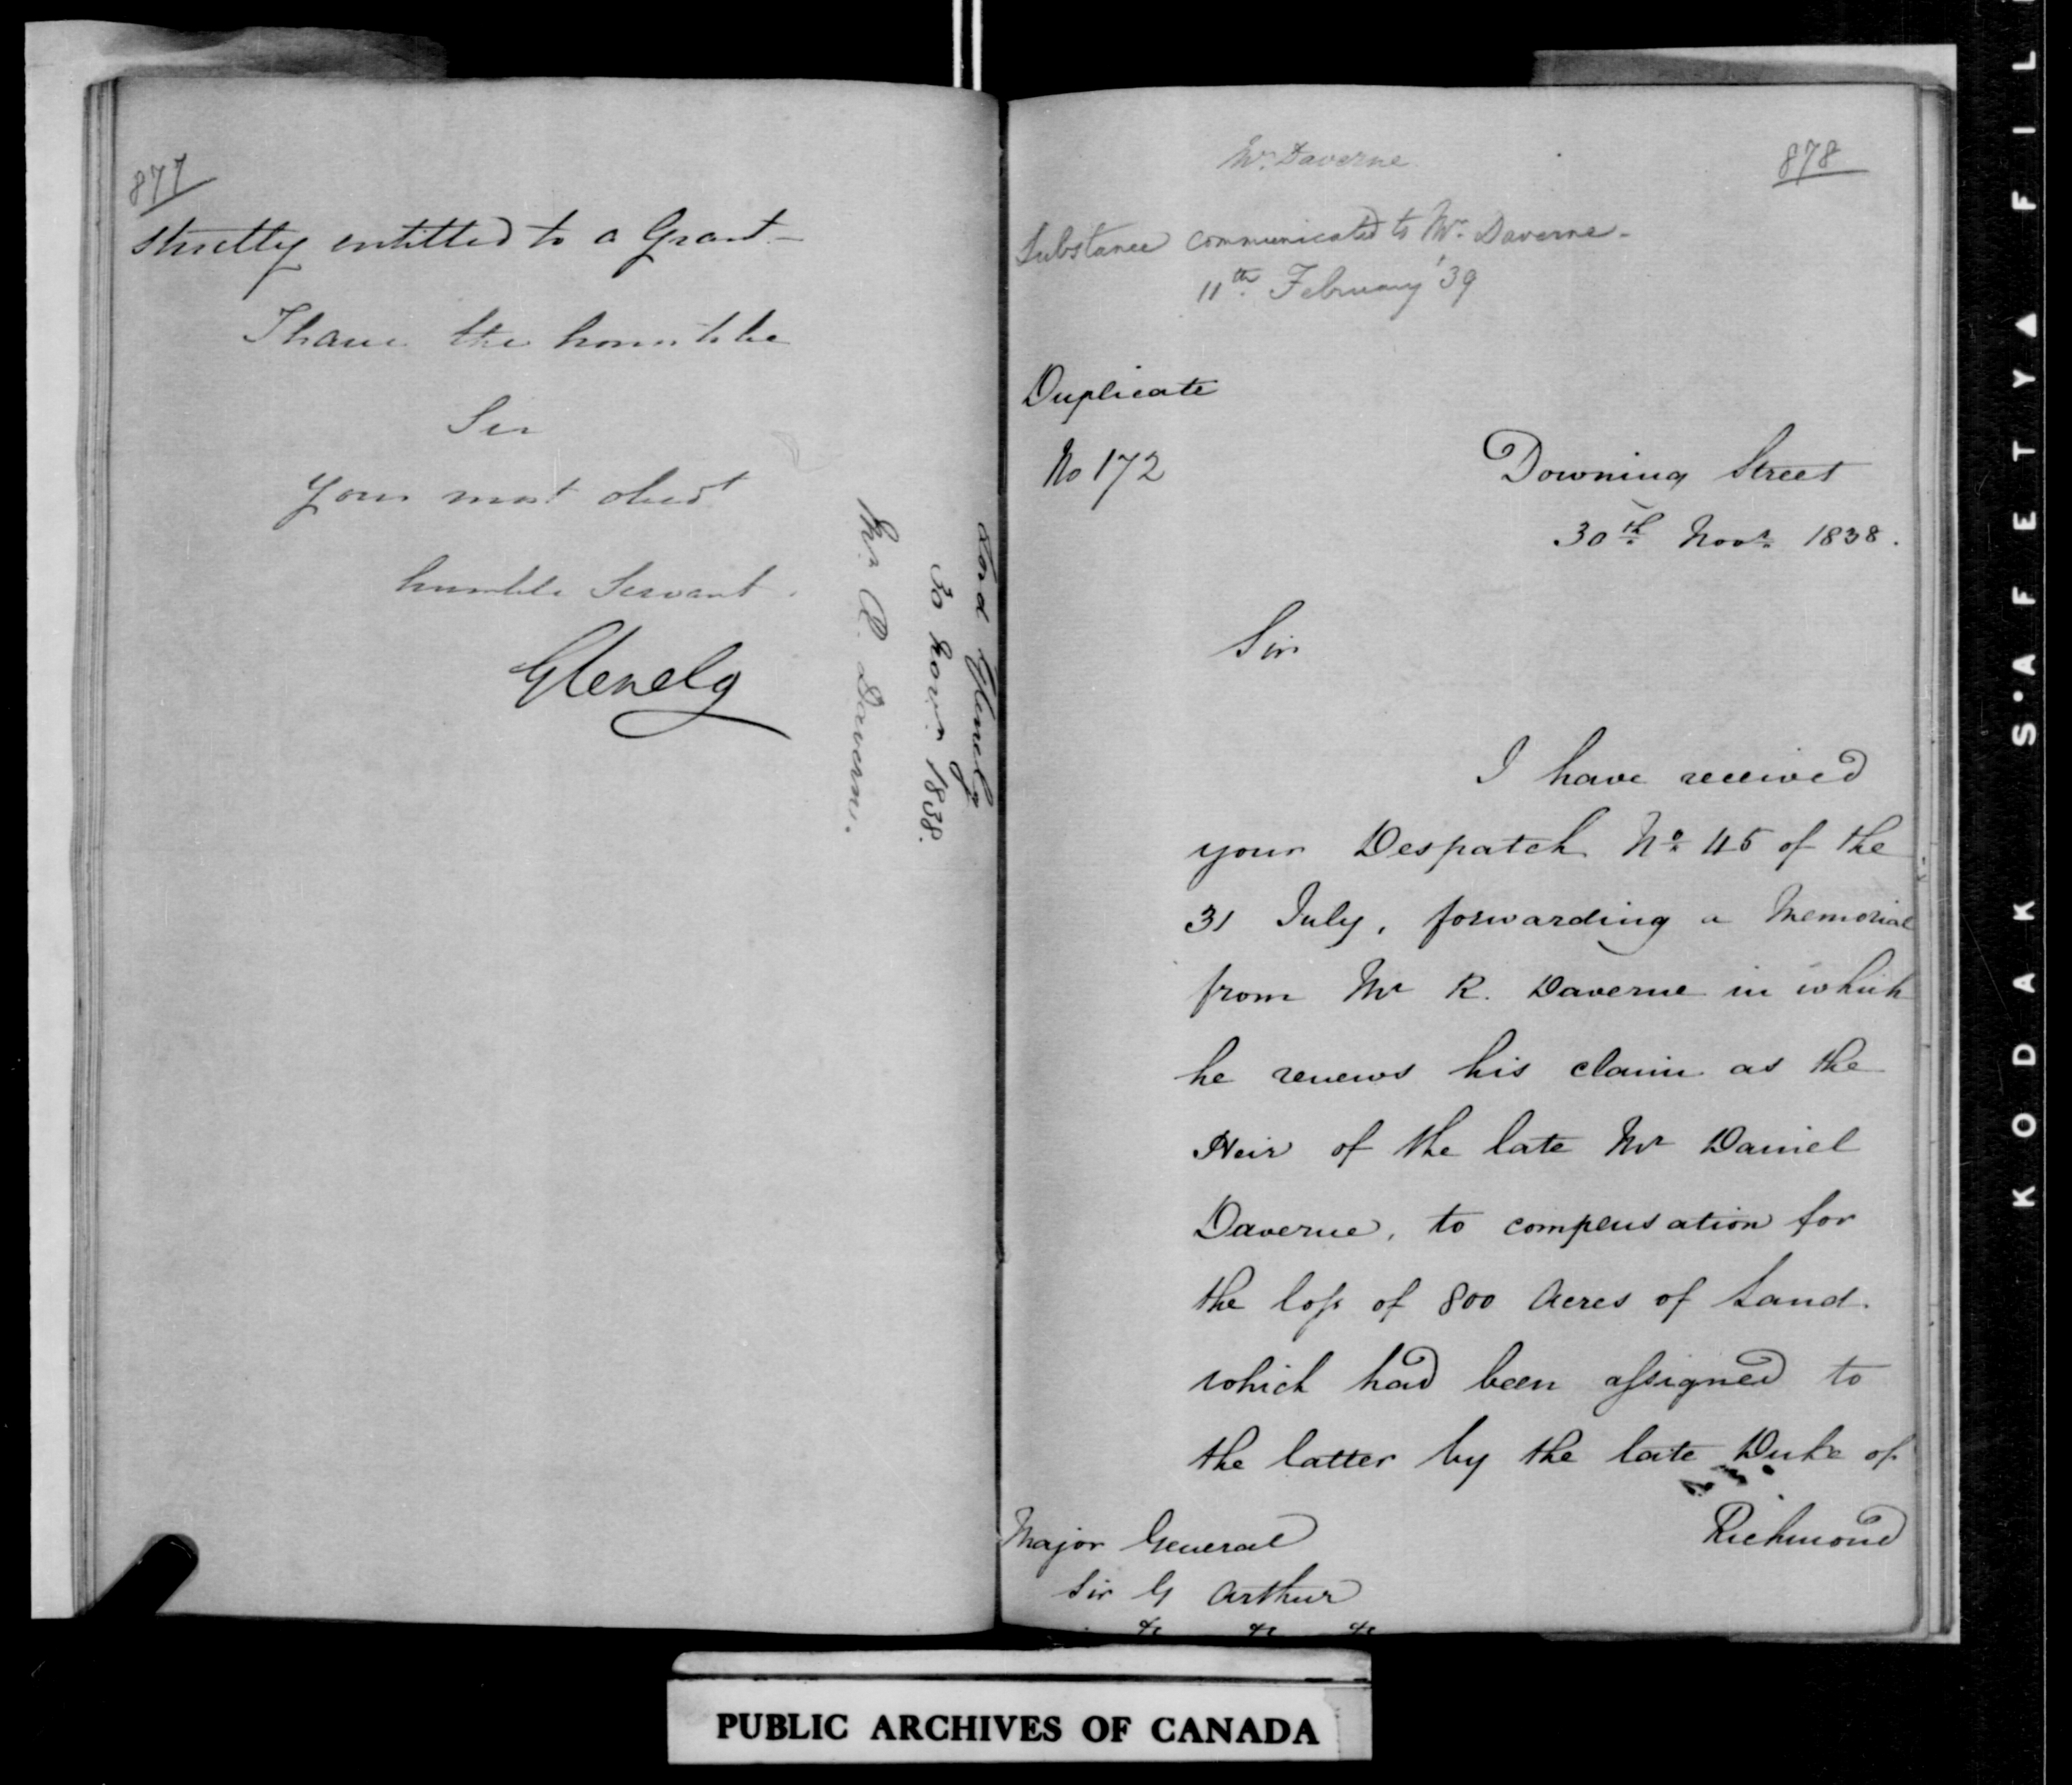 877
strictly entitled to a Grant.—
I have the honor to be
Sir
Your most obedt
humble Servant.
Glenelg
Lord Glenelg
30 Novr. 1838.
Mr. R. Daverne.
878
Mr. Daverne
Substance communicated to Mr. Daverne-
11th. February '39
Duplicate
No 172
Downing Street
30th. Novr. 1838.
Sir
I have received
your Despatch No. 45 of the
31 July, forwarding a Memorial
from Mr R. Daverne in which
he renews his claim as the
Heir of the late Mr Daniel
Daverne, to compensation for
the loss of 800 Acres of Land.
which had been assigned to
the latter by the late Duke of
Richmond
Major General
Sir G Arthur
&c &c &c
PUBLIC ARCHIVES OF CANADA
KODAK S'AFETY▲FIL